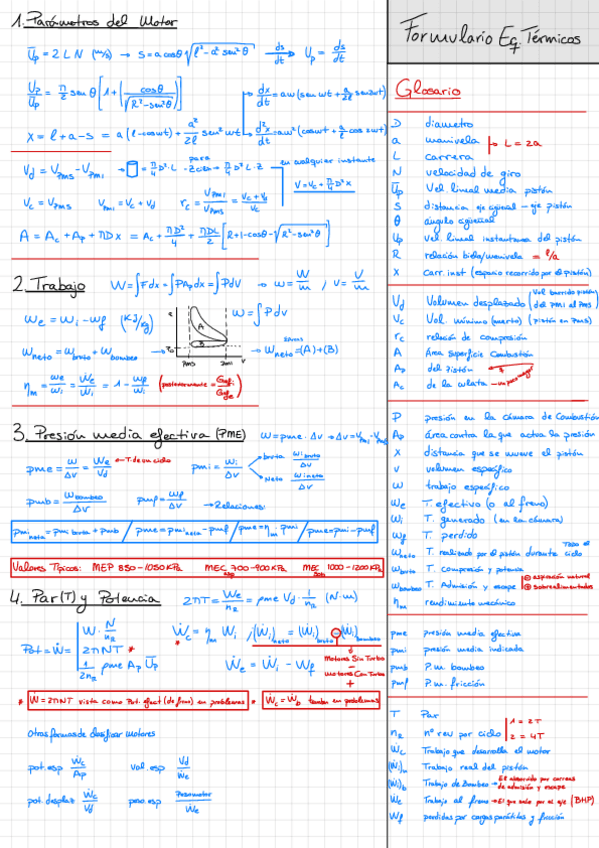 1. Parámetros del Motor
Ūp = 2LN (m/s) → s = a cosθ √(l² - a² sen²θ) ds/dt → Up = ds/dt
Up/Ūp = π/2 senθ [1 + cosθ/√(R² - sen²θ)]
dx/dt = aw (sen wt + a/2l sen 2wt)
x = l + a - s = a (1 - cos wt) + a²/2l sen² wt
d²x/dt = aw² (cos wt + a/l cos 2wt)
Vd = VPMS - VPMI → π/4 D²·L para
en cualquier instante
V = Vc + π/4 D² x
Vc = VPMS VPMI = Vc + Vd rc = VPMI/VPMS = (Vc + Vd)/Vc
A = Ac + Ap + πDx = Ac + πD²/4 + πDL/2 [R + 1 - cosθ - √(R² - sen²θ)]
2. Trabajo W = ∫Fdx = ∫PAp dx = ∫PdV → w = W/m , v = V/m
we = wi - wf (KJ/kg) w = ∫Pdv
wneto = wbruto + wbombeo → wneto = (A)+(B)
A
B
PMS PMI
ηm = we/wi = Ẇe/Ẇi = 1 - wf/wi
3. Presión media efectiva (PME) w = pme · Δv → Δv = vPMI - vPMS
pme = we/Δv = We/Vd ← T. de un ciclo pmi = wi/Δv
bruta wi bruto/Δv
Neta wi neto/Δv
pmb = wbombeo/Δv pmf = wf/Δv → Relaciones:
pmi neta = pmi bruta + pmb / pme = pmi neta - pmf / pme = ηm · pmi / pme = pmi - pmf
Valores Típicos: MEP 850-1050 KPa MEC 700-900 KPa MEC sob 1000-1200 KPa
4. Par(T) y Potencia 2πT = We/nR = pme Vd · 1/nR (N·m)
Pot = Ẇ = W · N/nR
2πNT *
1/2nR pme Ap Ūp
Ẇe = ηm Ẇi , (Ẇi)neto = (Ẇi)bruto - (Ẇi)bombeo
Motores Sin Turbo -
Motores Con Turbo +
Ẇe = Ẇi - Ẇf
* Ẇ = 2πNT vista como Pot. efect (de freno) en problemas
* Ẇe = Ẇb también en problemas
Otras formas de clasificar motores
pot. esp Ẇe/Ap vol. esp Vd/Ẇe
pot desplaz Ẇe/Vd peso esp Peso motor/Ẇe
Formulario Eq. Térmicos
Glosario
D diametro
a manivela → L = 2a
L carrera
N velocidad de giro
Ūp Vel lineal media pistón
S distancia eje cigüeñal - eje pistón
θ angulo cigüeñal
Up Vel. lineal instantanea del pistón
R relación biela/manivela = l/a
X carr. inst (espacio recorrido por el pistón)
Vol barrido pistón
Vd Volumen desplazado (del PMI al PMS)
Vc Vol mínimo (muerto) (pistón en PMS)
rc relación de compresión
A Area superficie Combustión
Ap del pistón
Ac de la culata
P presión en la cámara de Combustión
Ap área contra la que actua la presión
x distancia que se mueve el pistón
v volumen específico
w trabajo específico
We T. efectivo (o al freno)
Wi T. generado (en la cámara)
Wf T. perdido
Todo el
Wneto T. realizado por el pistón durante ciclo
Wbruto T. compresión y potencia
Wbombeo T. Admisión y escape
⊖ aspiración natural
⊕ sobrealimentados
ηm rendimiento mecánico
pme presión media efectiva
pmi presión media indicada
pmb P.m. bombeo
pmf P.m. fricción
T Par
nR nº rev por ciclo
1 = 2T
2 = 4T
Ẇe Trabajo que desarrolla el motor
(Ẇi)n Trabajo real del pistón
(Ẇi)b Trabajo de Bombeo → El absorbido por carreras de admisión y escape
We Trabajo al freno → El que sale por el eje (BHP)
Wf perdidas por cargas parásitas y fricción